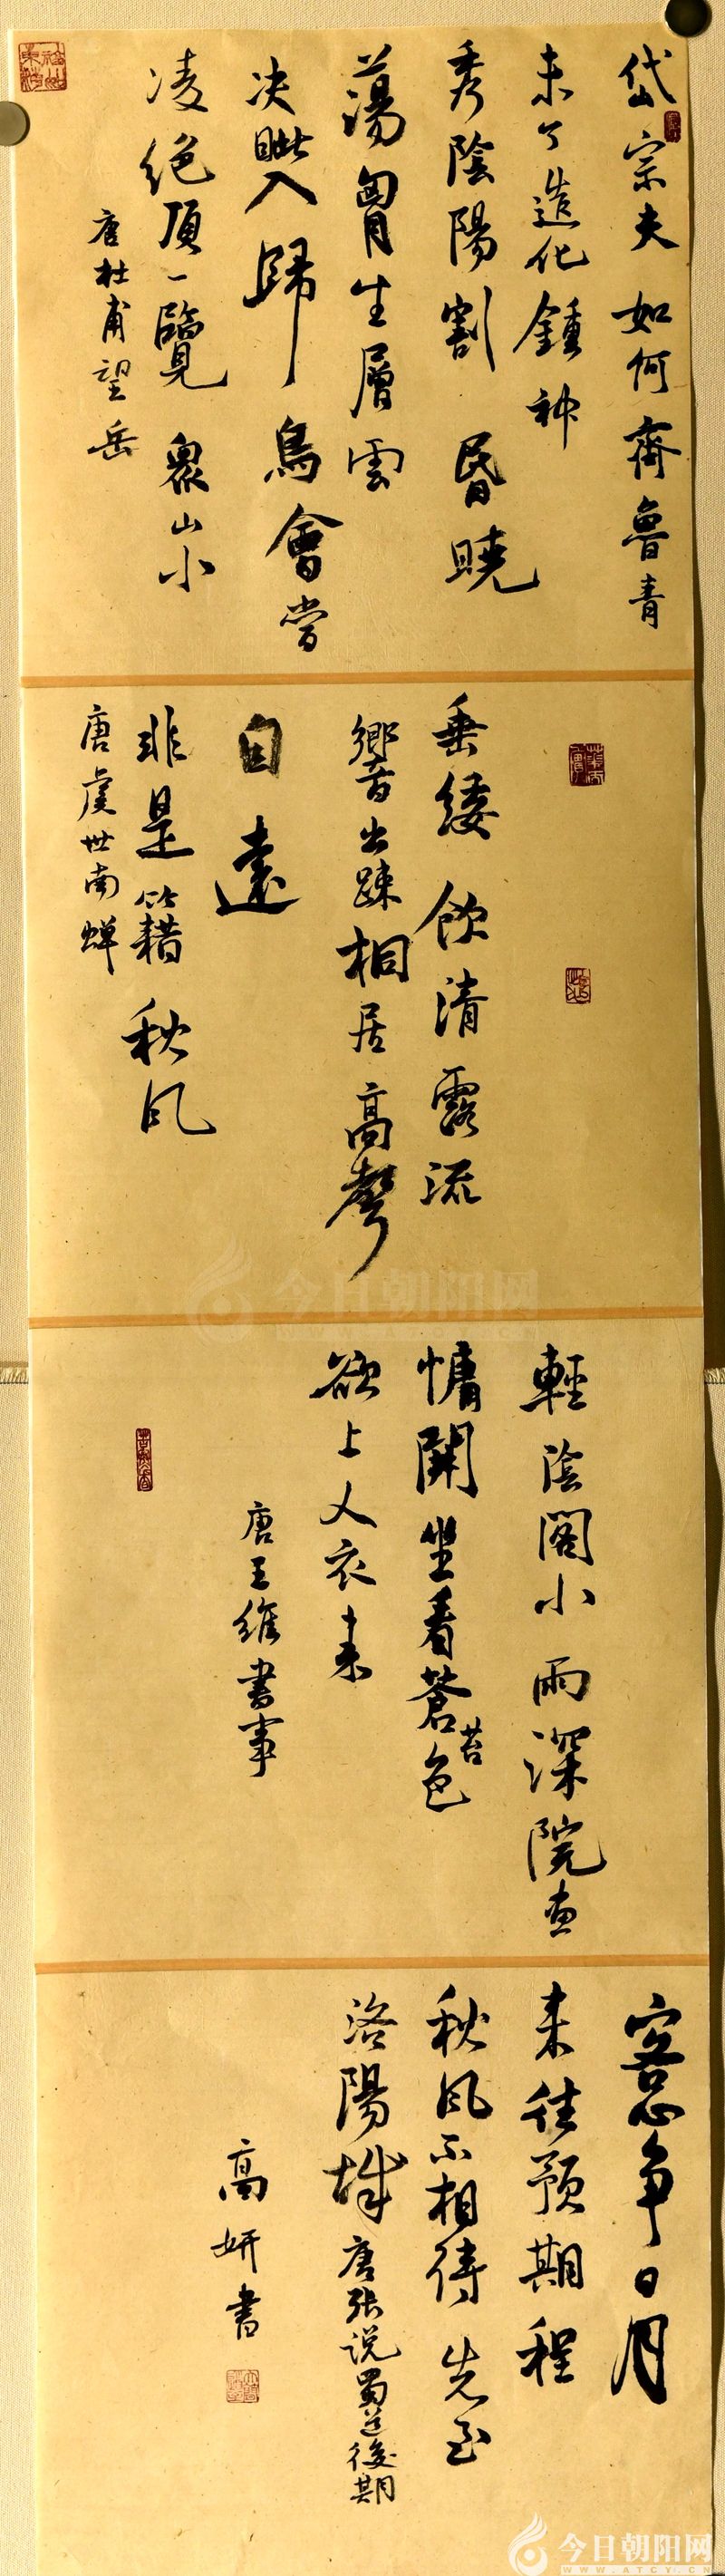 岱宗夫如何齊魯青
未了造化鍾神
秀陰陽割昏曉
蕩胷生層雲
决眦入歸鳥會當
凌绝頂一覽眾山小
唐杜甫望岳
垂緌飲清露流
響出踈桐居高聲
自遠
非是籍秋风
唐虞世南蝉
輕陰閣小雨深院晝
慵開坐看蒼苔色
欲上人衣来
唐王维書事
客心争日月
来往预期程
秋风不相待先至
洛陽城唐张说蜀道後期
高妍書
今日朝阳网
今日朝阳网
WWW.ATCY.CN